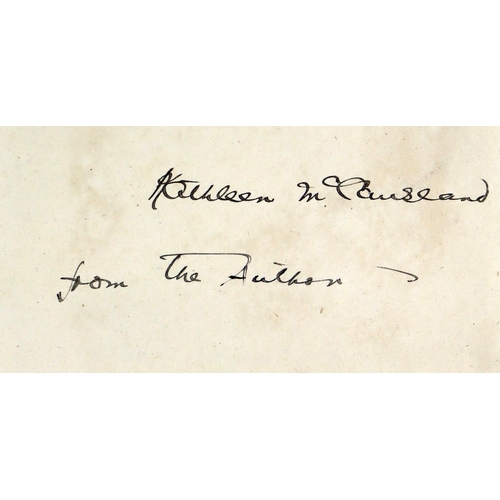 Kathleen McCausland
from The Author